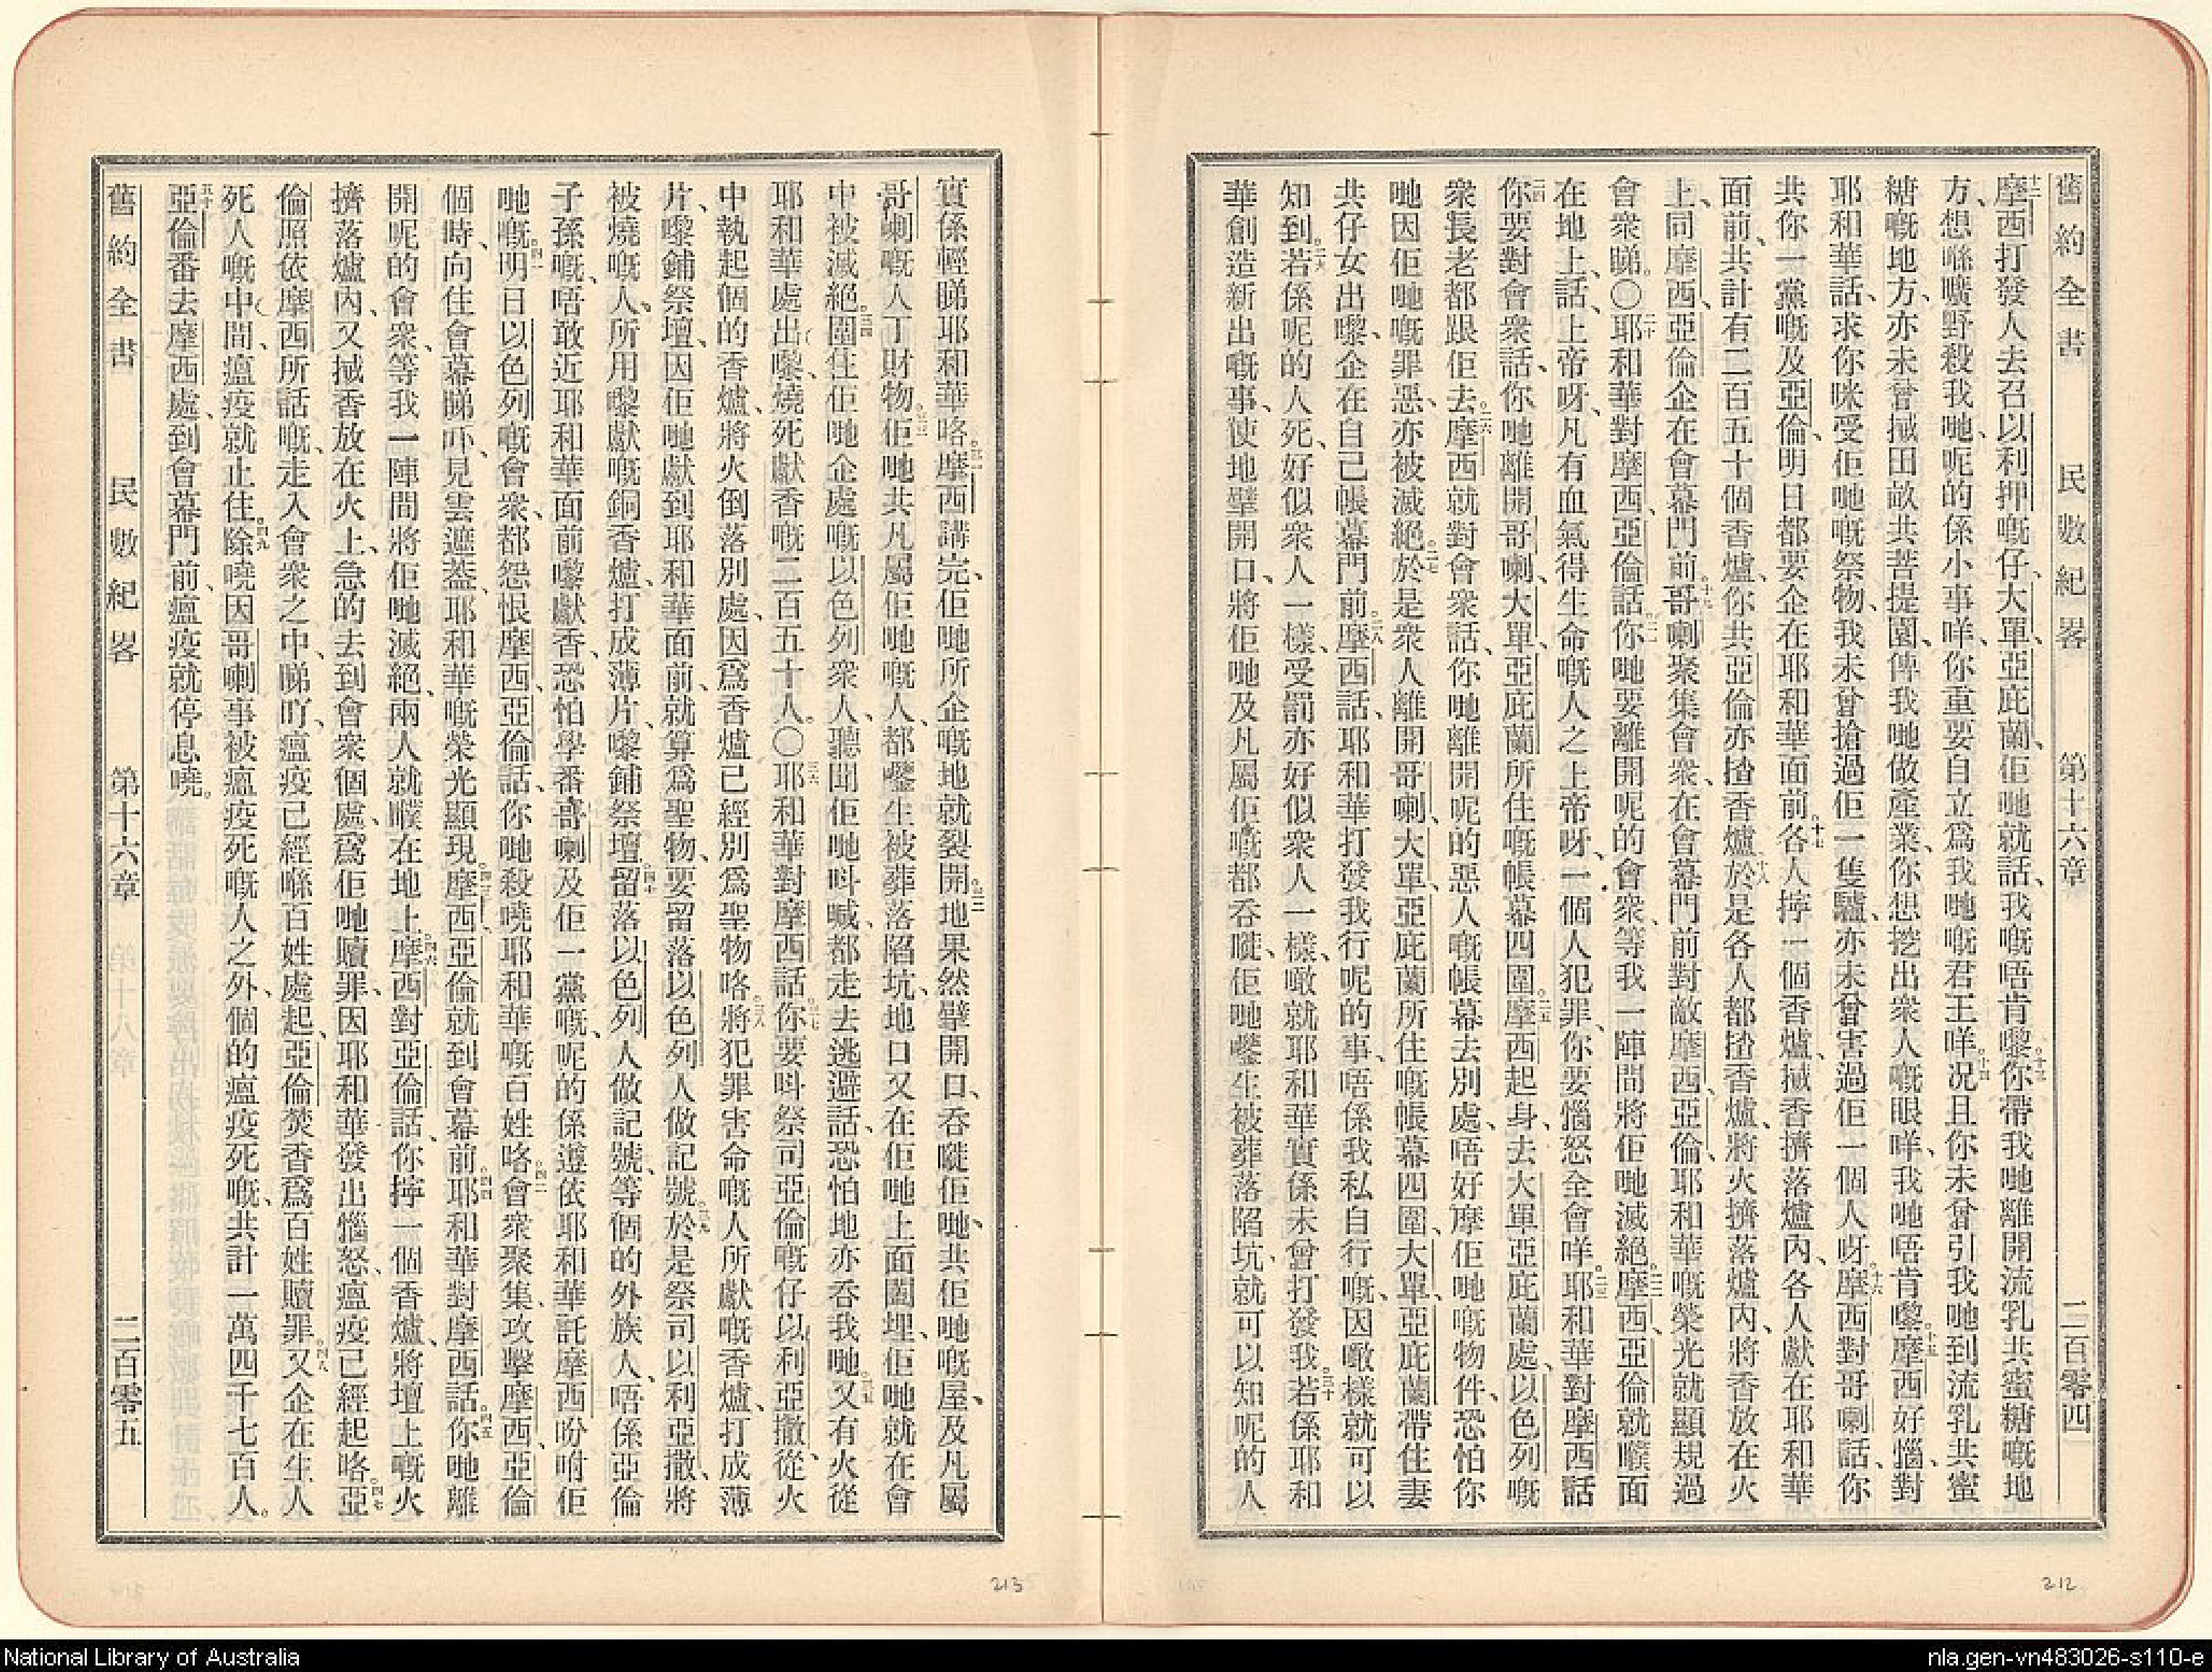 舊約全書 民數紀畧 第十六章 二百零四
十二摩西打發人去召以利押嘅仔、大單、亞庇蘭、佢哋就話、我嘅唔肯嚟。十三你帶我哋離開流乳共蜜糖嘅地
方、想喺曠野殺我哋、呢的係小事咩、你重要自立爲我哋嘅君王咩。十四况且你未曾引我哋到流乳共蜜
糖嘅地方、亦未曾揻田畝共菩提園、傳我哋做產業、你想挖出衆人嘅眼咩、我哋唔肯嚟。十五摩西好惱、對
耶和華話、求你咪受佢哋嘅祭物、我未曾搶過佢一隻驢、亦未曾害過佢一個人呀。十六摩西對哥喇話、你
共你一黨嘅及亞倫、明日都要企在耶和華面前。十七各人擰一個香爐、揻香擠落爐內、各人獻在耶和華
面前、共計有二百五十個香爐、你共亞倫亦揸香爐。十八於是各人都揸香爐、將火擠落爐內、將香放在火
上、同摩西、亞倫企在會幕門前。十九哥喇聚集會衆、在會幕門前對敵摩西、亞倫、耶和華嘅榮光就顯現過
會衆睇。〇二十耶和華對摩西、亞倫話、二一你哋要離開呢的會衆、等我一陣間將佢哋滅絕。二二摩西、亞倫就䁱面
在地上、話、上帝呀、凡有血氣得生命嘅人之上帝呀、一個人犯罪、你要惱怒全會咩。二三耶和華對摩西話
二四你要對會衆話、你哋離開哥喇、大單、亞庇蘭所住嘅帳幕四圍。二五摩西起身、去大單亞庇蘭處、以色列嘅
衆長老都跟佢去。二六摩西就對會衆話、你哋離開呢的惡人嘅帳幕去別處、唔好摩佢哋嘅物件、恐怕你
哋因佢哋嘅罪惡、亦被滅絕。二七於是衆人離開哥喇、大單、亞庇蘭所住嘅帳幕四圍、大單、亞庇蘭帶住妻
共仔女出嚟、企在自己帳幕門前。二八摩西話、耶和華打發我行呢的事、唔係我私自行嘅、因噉樣就可以
知到。二九若係呢的人死、好似衆人一樣、受罰亦好似衆人一樣、噉就耶和華實係未曾打發我。三十若係耶和
華創造新出嘅事、使地擘開口、將佢哋及凡屬佢嘅都吞嚨、佢哋㘉生被葬落陷坑、就可以知呢的人
實係輕睇耶和華咯。三一摩西講完、佢哋所企嘅地就裂開。三二地果然擘開口、吞嚨佢哋、共佢哋嘅屋、及凡屬
哥喇嘅人丁財物。三三佢哋共凡屬佢哋嘅人、都㘉生被葬落陷坑、地口又在佢哋上面圍埋、佢哋就在會
中被滅絕。三四圍住佢哋企處嘅以色列衆人、聽聞佢哋呌喊、都走去逃避、話、恐怕地亦吞我哋。三五又有火從
耶和華處出嚟、燒死獻香嘅二百五十人。〇三六耶和華對摩西話、三七你要呌祭司亞倫嘅仔以利亞撒、從火
中執起個的香爐、將火倒落別處、因爲香爐已經別爲聖物咯。三八將犯罪害命嘅人所獻嘅香爐、打成薄
片、嚟鋪祭壇、因佢哋獻到耶和華面前、就算爲聖物、要留落以色列人做記號。三九於是祭司以利亞撒、將
被燒嘅人、所用嚟獻嘅銅香爐、打成薄片、嚟鋪祭壇。四十留落以色列人做記號、等個的外族人、唔係亞倫
子孫嘅、唔敢近耶和華面前嚟獻香、恐怕學番哥喇及佢一黨嘅、呢的係遵依耶和華託摩西吩咐佢
哋嘅。四一明日以色列嘅會衆、都怨恨摩西、亞倫話、你哋殺嘵耶和華嘅百姓咯。四二會衆聚集、攻擊摩西、亞倫
個時、向住會幕睇吓、見雲遮葢、耶和華嘅榮光顯現。四三摩西、亞倫就到會幕前。四四耶和華對摩西話、四五你哋離
開呢的會衆、等我一陣間將佢哋滅絕、兩人就䁱在地上。四六摩西對亞倫話、你擰一個香爐、將壇上嘅火
擠落爐內、又揻香放在火上、急的去到會衆個處、爲佢哋贖罪、因耶和華發出惱怒、瘟疫已經起咯。四七亞
倫照依摩西所話嘅、走入會衆之中、睇吓、瘟疫已經喺百姓處起、亞倫焚香爲百姓贖罪。四八又企在生人
死人嘅中間、瘟疫就止住。四九除嘵因哥喇事被瘟疫死嘅人之外、個的瘟疫死嘅、共計一萬四千七百人。
五十亞倫番去摩西處、到會幕門前、瘟疫就停息嘵。
舊約全書 民數紀畧 第十六章 二百零五
213
212
National Library of Australia
nla.gen-vn483026-s110-e